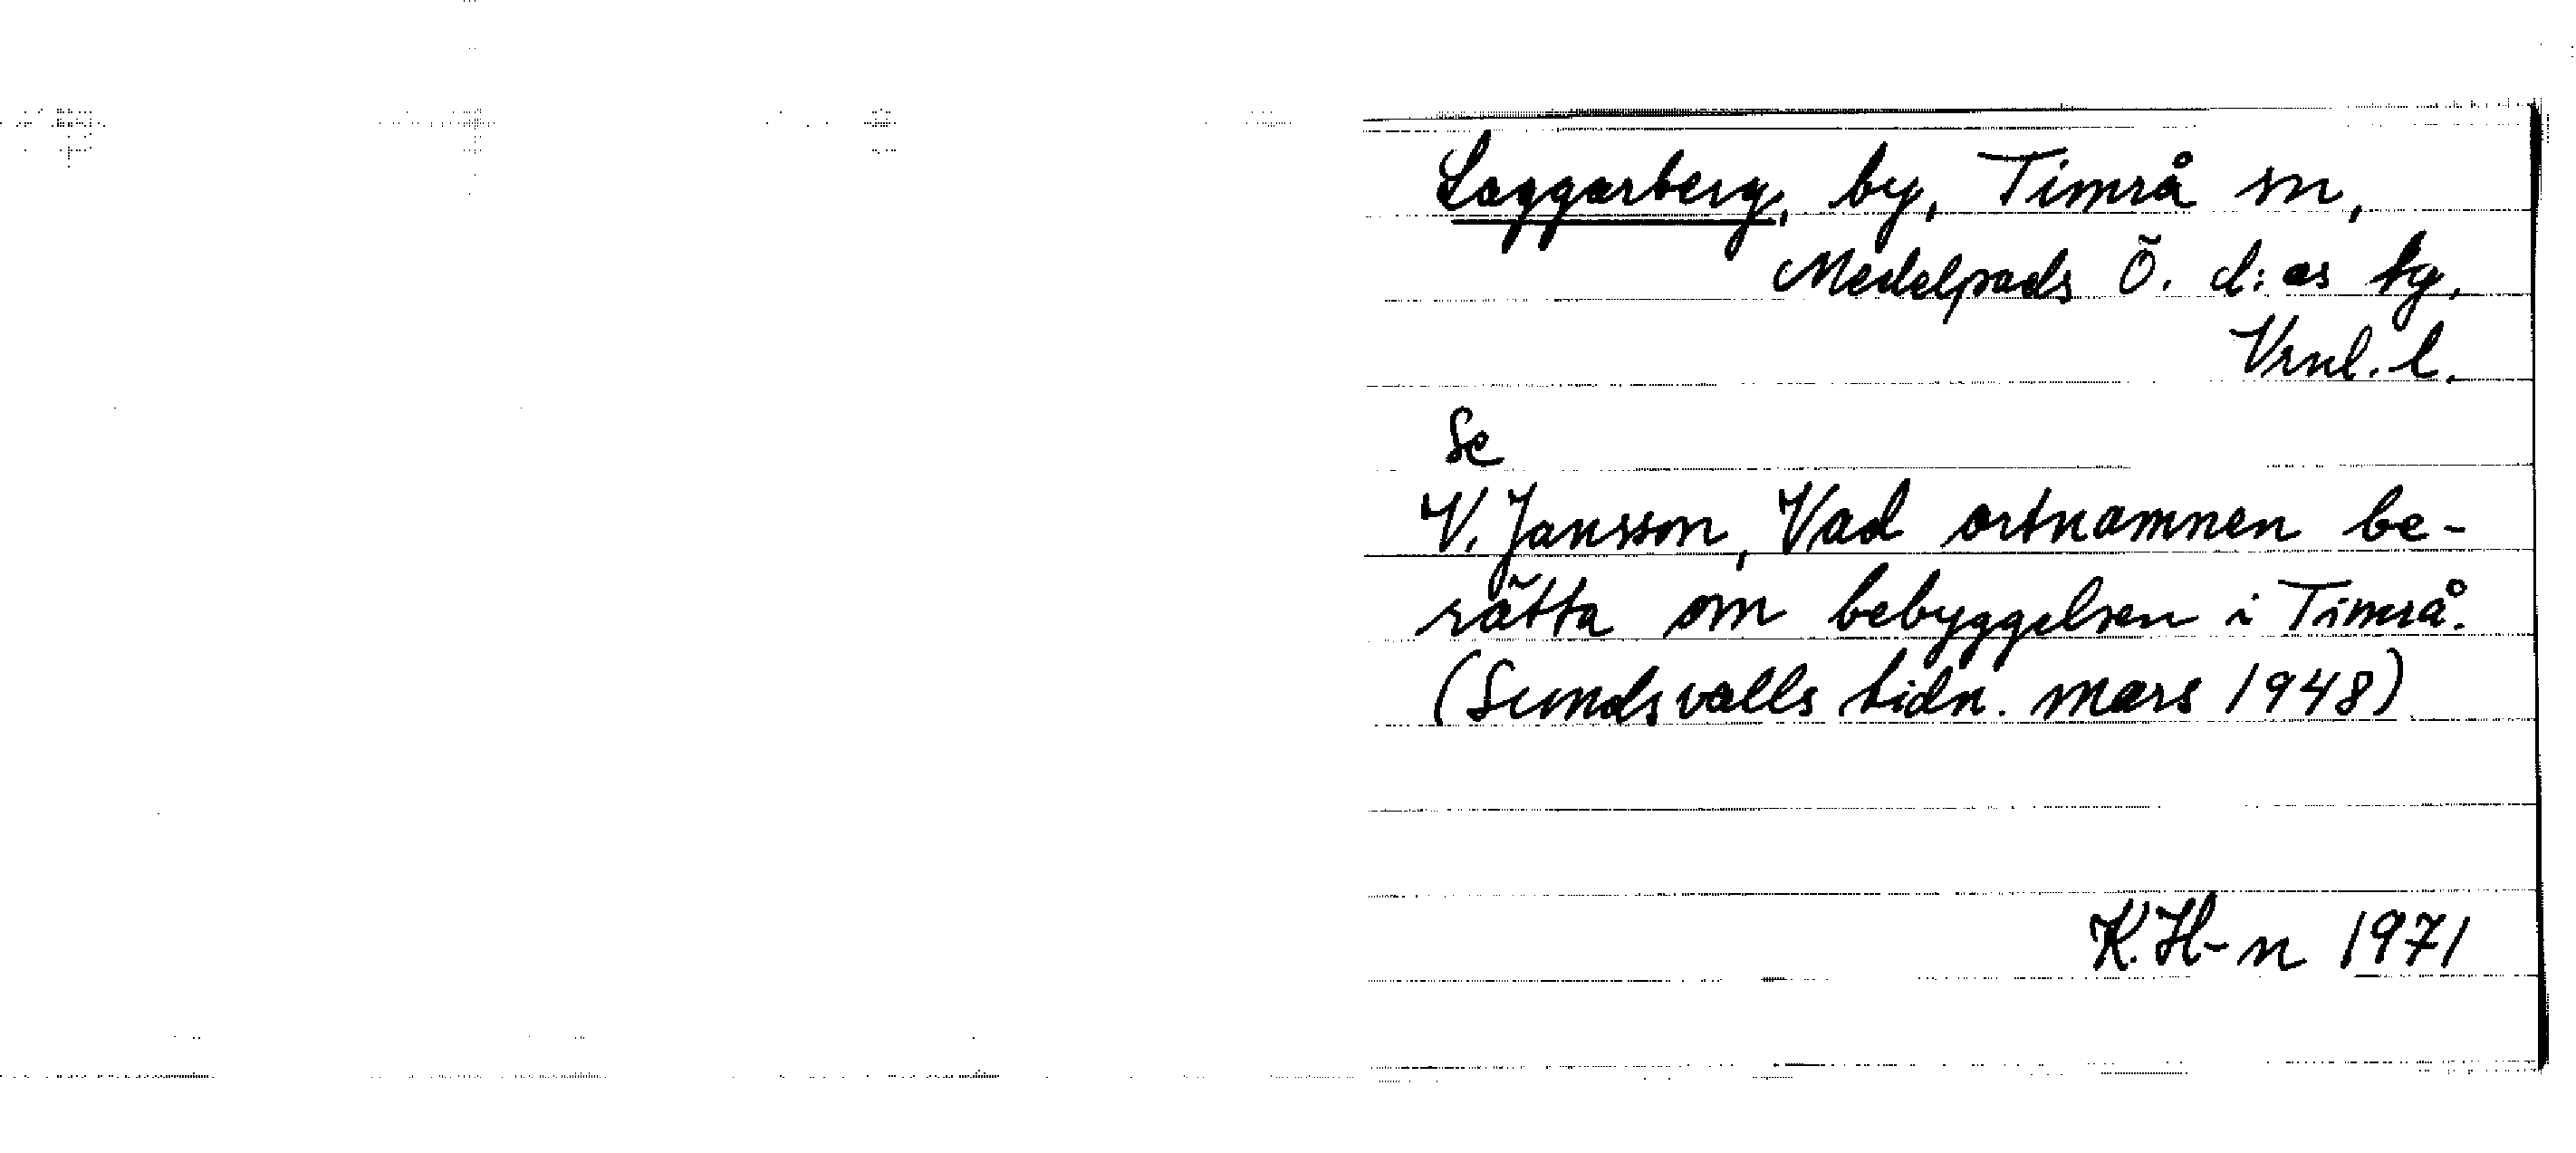 Laggarberg, by, Timrå sn,
Medelpads Ö. d:as tg.
Vrnl. l.
Se
V. Jansson, Vad ortnamnen be-
rätta om bebyggelsen i Timrå.
(Sundsvalls tidn. mars 1948)
K. H-n 1971